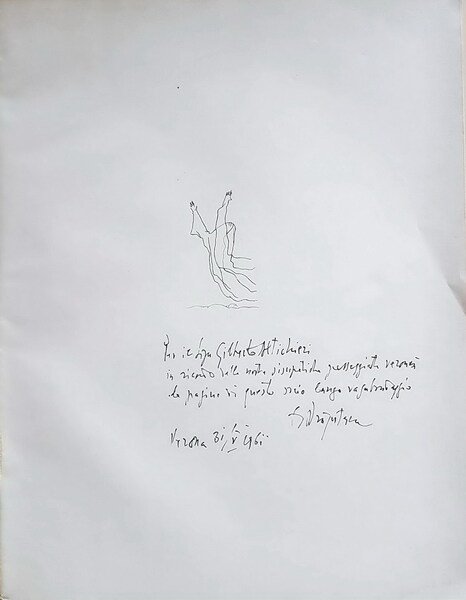 Per il sig. Gilberto Altichieri
in ricordo delle nostre passeggiate veronesi
le pagine di questo mio lungo vagabondaggio
Verona 31/V 1961